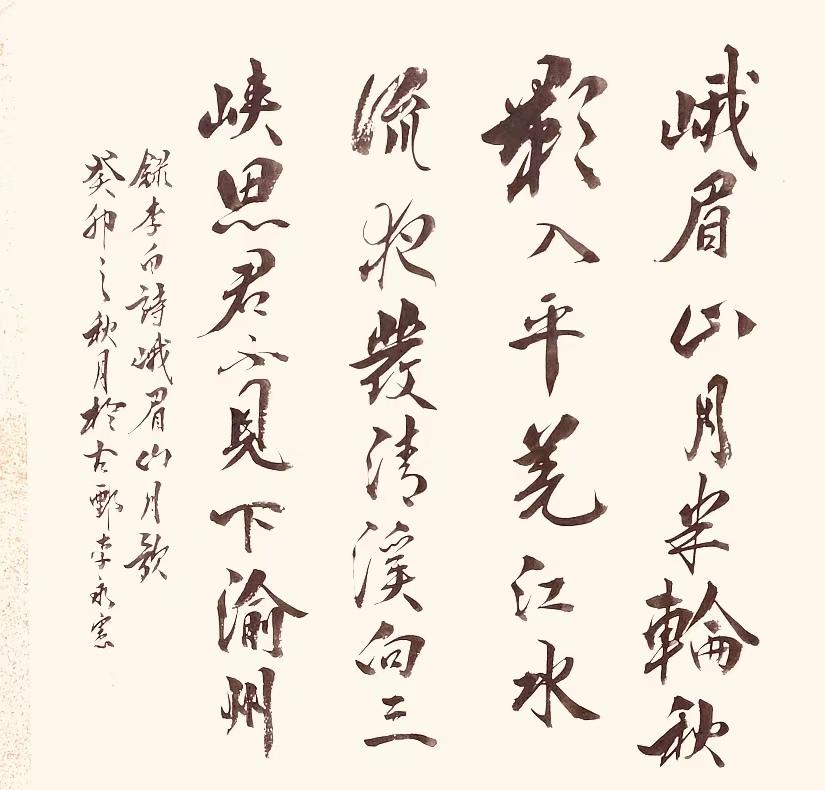 峨眉山月半輪秋
影入平羌江水
流夜發清溪向三
峽思君不見下渝州
錄李白詩峨眉山月歌
癸卯之秋月於古鄄李永憲